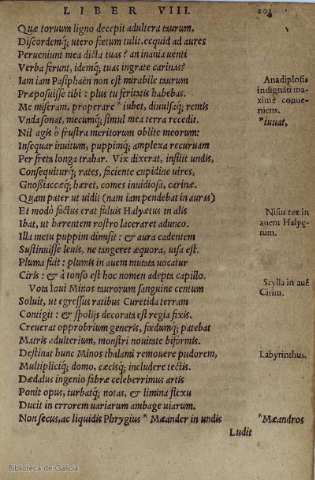 LIBER VIII.
203
Quæ toruum ligno decepit adultera taurum,
Discordemq́; utero fœtum tulit. ecquid ad aures
Perueniunt mea dicta tuas? an inania uenti
Verba ferunt, idemq́; tuas ingrate carinas?
Iam iam Pasiphaën non est mirabile taurum
Præposuisse tibi: plus tu feritatis habebas.
Me miseram, properare * iubet, diuulsaq́; remis
Vnda sonat, mecumq́; simul mea terra recedit.
Nil agis ô frustra meritorum oblite meorum:
Insequar inuitum, puppimq́; amplexa recuruam
Per freta longa trahar. Vix dixerat, insilit undis,
Consequiturq́; rates, faciente cupidine uires,
Gnosiacæq́; hæret, comes inuidiosa, carinæ.
Quam pater ut uidit (nam iam pendebat in auras)
Et modò factus erat fuluis Halyæetus in alis
Ibat, ut hærentem rostro laceraret adunco.
Illa metu puppim dimisit: & aura cadentem
Sustinuisse leuis, ne tangeret æquora, uisa est.
Pluma fuit: plumis in auem mutata uocatur
Ciris: & à tonso est hoc nomen adepta capillo.
Vota Ioui Minos taurorum sanguine centum
Soluit, ut egressus ratibus Curetida terram
Contigit: & spolijs decorata est regia fixis.
Creuerat opprobrium generis, fœdumq́; patebat
Matris adulterium, monstri nouitate biformis.
Destinat hunc Minos thalami remouere pudorem,
Multipliciq́; domo, cæcisq́; includere tectis.
Dædalus ingenio fabræ celeberrimus artis
Ponit opus, turbatq́; notas, & limina flexu
Ducit in errorem uariarum ambage uiarum.
Non secus, ac liquidis Phrygius * Mæander in undis
Ludit
Anadiplosis
indignati ma-
ximè conue-
niens.
* iuuat,
Nisus rex in
auem Halyæ-
tum.
Scylla in auē
Cirim.
Labyrinthus.
* Mæandros
Biblioteca de Galicia